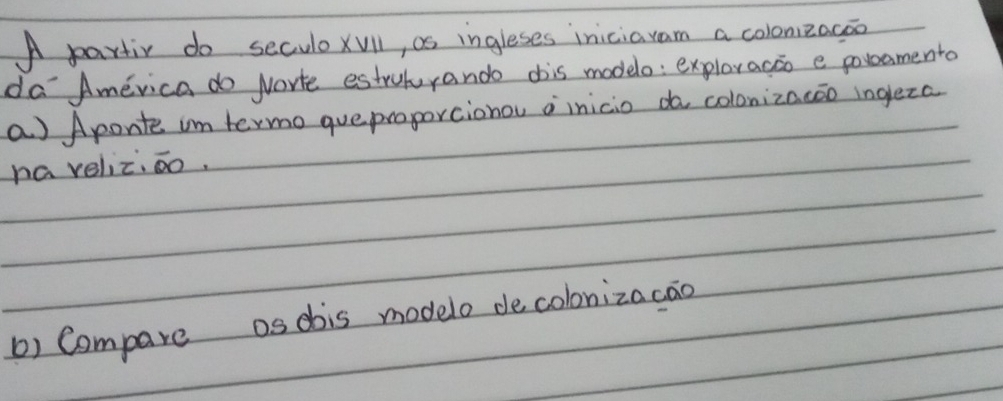 A partir do seculo XVII, os ingleses iniciaram a colonização
da América do Norte estruturando dois modelo: exploração e povoamento
a) Aponte um termo que proporcionou o inicio da colonização ingleza
na relizião.
b) Compare os dois modelo de colonização